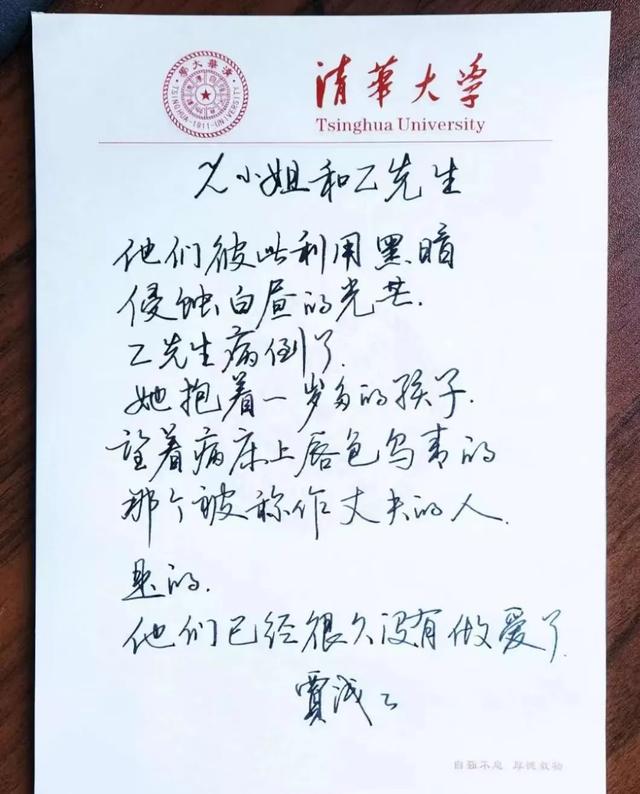 清華大學
TSINGHUA-1911-UNIVERSITY
清華大学
Tsinghua University
尤小姐和乙先生
他们彼此利用黑暗
侵蚀白昼的光芒.
乙先生病倒了.
她抱着一岁多的孩子.
望着病床上唇色乌青的
那个被称作丈夫的人.
是的.
他们已经很久没有做爱了.
賈浅之
自强不息 厚德载物